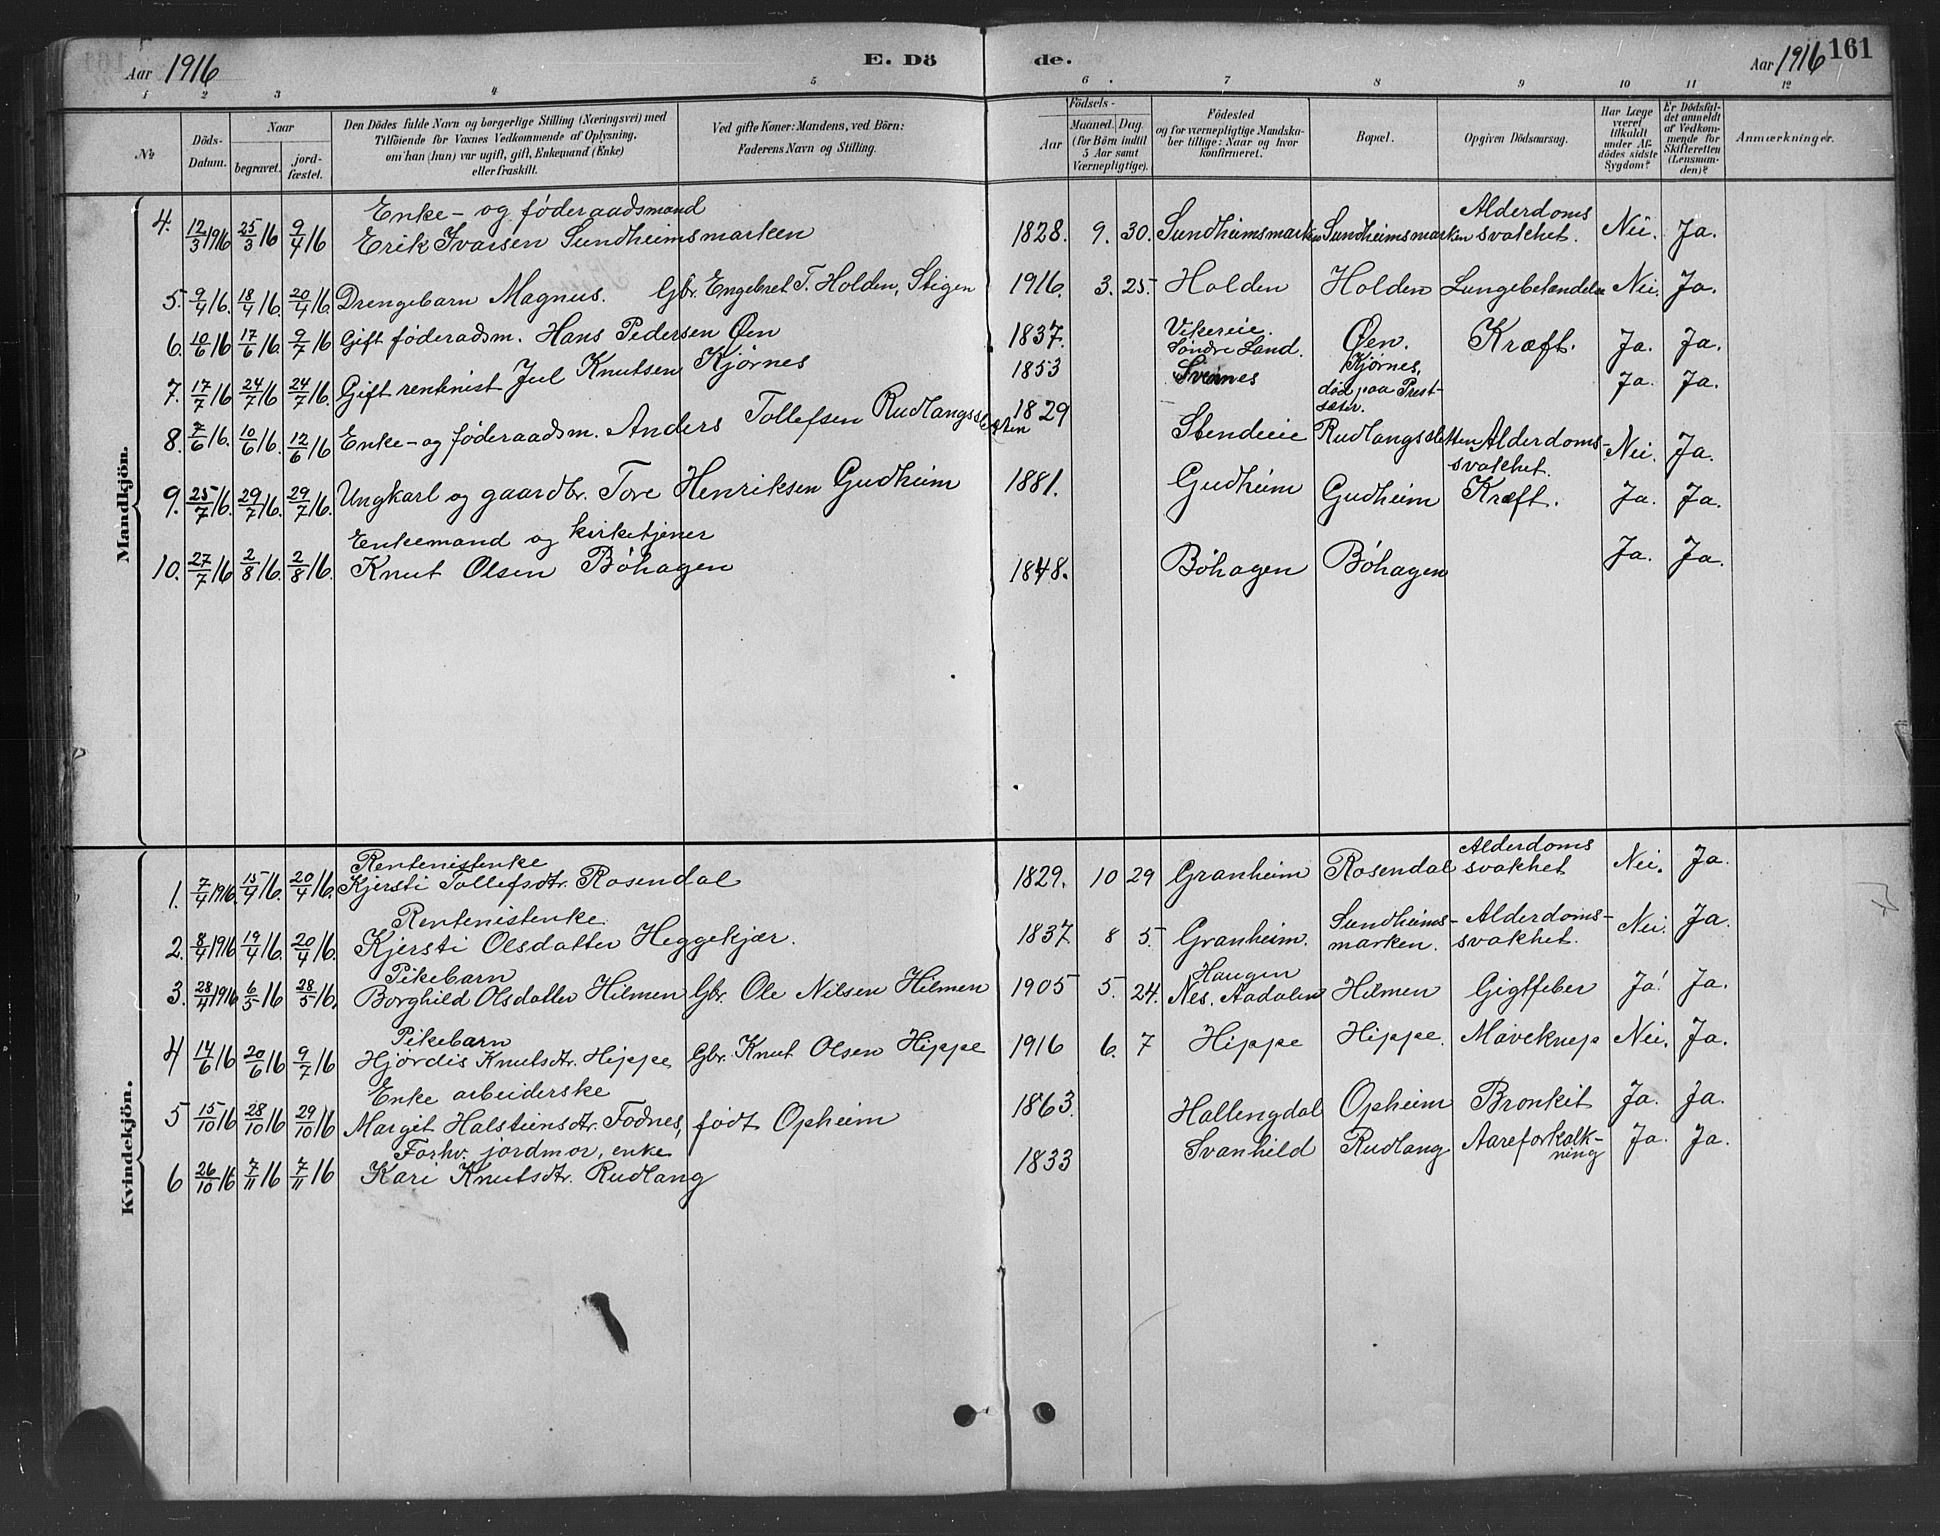 Aar 1916 E. Dö de. Aar 1916 161
1 2 3 4 5 6 7 8 9 10 11 12
No
Döds-
Datum.
Naar
begravet. jord-
fæstet.
Den Dödes fulde Navn og borgerlige Stilling (Næringsvei) med
Tilföiende for Voxnes Vedkommende af Oplysning,
om han (hun) var ugift, gift, Enkemand (Enke)
eller fraskilt.
Ved gifte Koner: Mandens, ved Börn:
Faderens Navn og Stilling.
Födsels-
Aar
Maaned. Dag
(for Börn indtil
5 Aar samt
Værnepligtige).
Födested
og for værnepligtige Mandska-
ber tillige: Naar og hvor
konfirmeret.
Bopæl.
Opgiven Dödsaarsag.
Har Læge
været
tilkaldt
under Af-
dödes sidste
Sygdom?
Er Dödsfal-
det anmeldt
af Vedkom-
mende for
Skifteretten
(Lensman-
den)?
Anmærkninger.
Mandkjön.
Enke- og føderaadsmand Alderdoms
4. 12/3 1916 25/3 16 9/4 16 Erik Ivarsen Sundheimsmarken 1828. 9. 30. Sundheimsmarken Sundheimsmarken svakhet. Nei. Ja.
5. 9/4 16. 18/4 16. 20/4 16. Drengebarn Magnus. Gbr. Engebret T. Holden, Stigen 1916. 3. 25. Holden Holden Lungebetændelse Nei. Ja.
6. 10/6 16 17/6 16. 9/7 16 Gift føderaadsm. Hans Pedersen Øen 1837. Vikereie. Søndre Land. Øen. Kræft. Ja. Ja.
7. 17/7 16 24/7 16 24/7 16. Gift rentenist Jul Knutsen Kjørnes 1853 Kjørnes, død paa Prest-
sæter. Ja. Ja.
8. 7/6 16. 10/6 16. 12/6 16 Enke- og føderaadsm. Anders Tollefsen Rudlangssletten 1829 Stendeie Rudlangssletten Alderdoms-
svakhet. Nei. Ja.
9. 25/7 16. 29/7 16. 29/7 16. Ungkarl og gaardbr. Tore Henriksen Gudheim 1881. Gudheim Gudheim Kræft. Ja. Ja.
Enkemand og kirketjener
10. 27/7 16 2/8 16. 2/8 16. Knut Olsen Bøhagen 1848. Bøhagen Bøhagen Ja. Ja.
Kvindekjön.
Rentenistenke Alderdoms
1. 7/4 1916. 15/4 16. 20/4 16. Kjersti Tollefsdtr. Rosendal 1829. 10 29 Granheim Rosendal svakhet Nei. Ja.
Rentenistenke Sundheims- Alderdoms-
2. 8/4 1916 19/4 16. 20/4 16. Kjersti Olsdatter Heggekjær. 1837 8 5. Granheim. marken. svakhet. Nei. Ja.
Pikebarn Haugen
3. 28/4 1916 6/5 16 28/5 16. Borghild Olsdatter Hilmen Gbr. Ole Nilsen Hilmen 1905 5. 24. Nes, Aadalen Hilmen Gigtfeber Ja! Ja.
Pikebarn
4 14/6 16 20/6 16 9/7 16 Hjördis Knutsdtr. Hippe Gbr. Knut Olsen Hippe 1916 6. 7 Hippe Hippe. Maveknep Nei. Ja.
Enke arbeiderske
5 15/10 16 28/10 16 29/10 16 Margit Halsteinsdtr. Fodnes, født Opheim 1863. Hallengdal Opheim Bronkit Ja. Ja.
Forhv. jordmor, enke
6 26/10 16 7/11 16 7/11 16 Kari Knutsdtr. Rudlang 1833 Svanhild Rudlang Aareforkalk-
ning Ja. Ja.